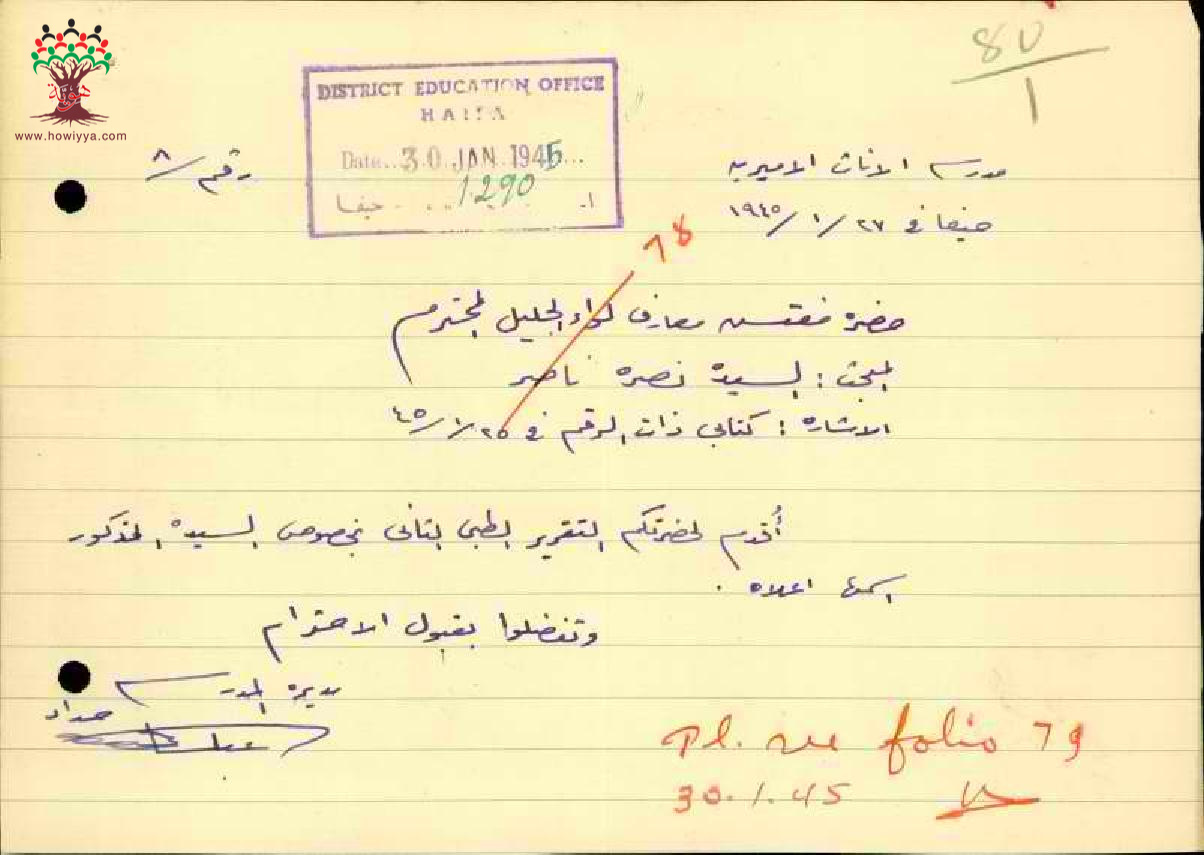 80
1
هوية
www.howiyya.com
DISTRICT EDUCATION OFFICE
HAIFA
Date..30 JAN 1945...
1290
حيفا
مدرسة الاناث الاميرية
رقم / ٨
حيفا في ٢٧ / ١ / ١٩٤٥
78
حضرة مفتش معارف لواء الجليل المحترم
المبحث : السيدة نصره ناصر
الاشارة : كتابي ذات الرقم في ٢٥ / ١ / ٤٥
أقدم لحضرتكم التقرير الطبي الثاني بخصوص السيدة المذكور
اسمها اعلاه .
وتفضلوا بقبول الاحترام
مديرة المدرسة
حداد
Pl. see folio 79
30.1.45